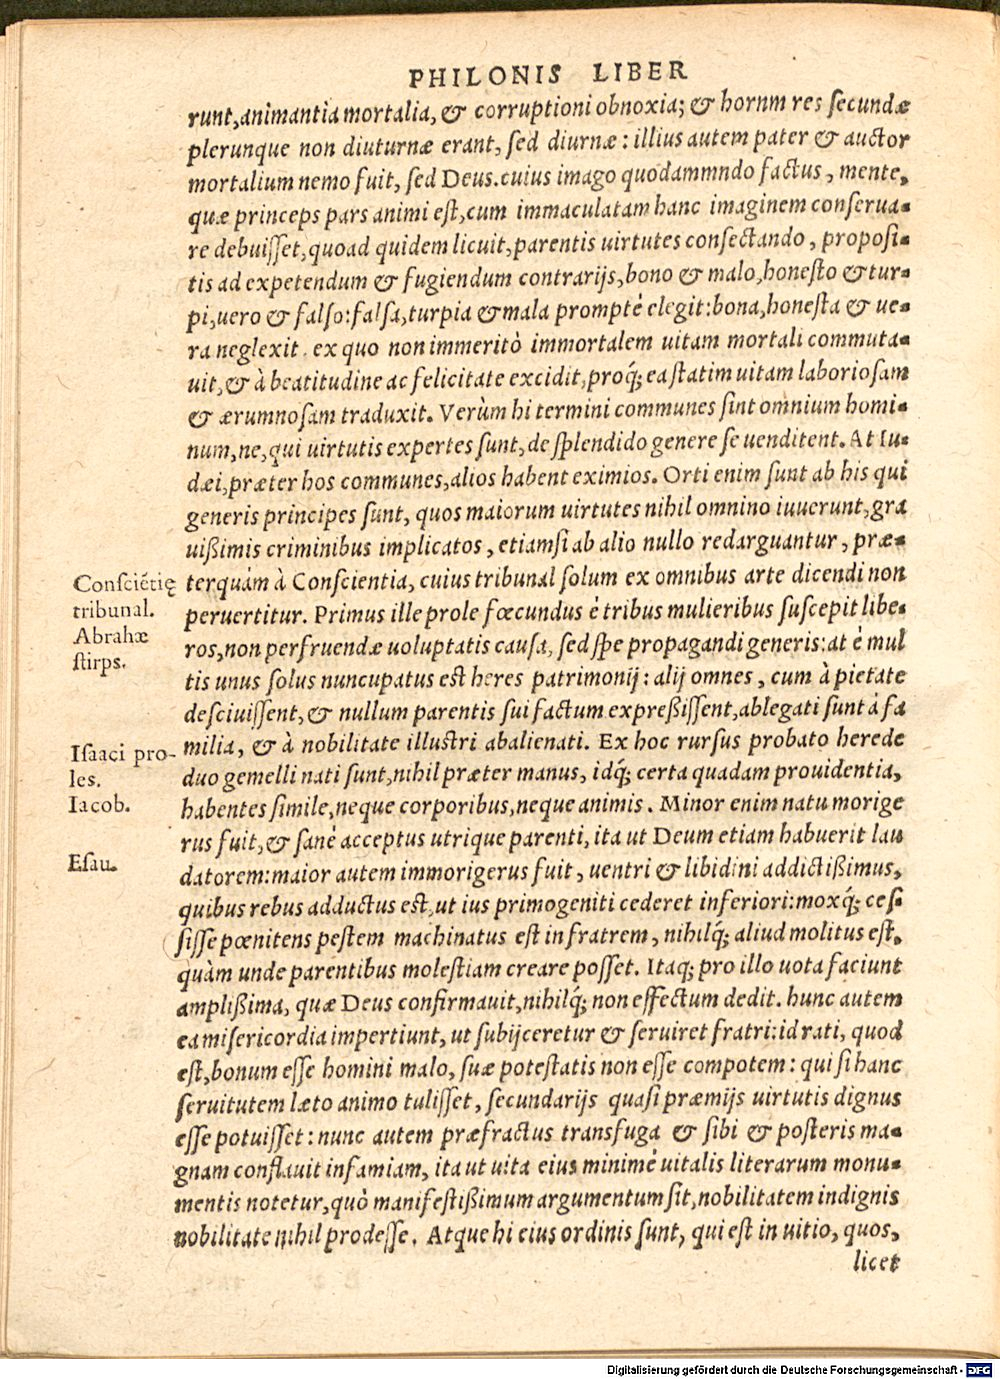 PHILONIS LIBER
runt,animantia mortalia, & corruptioni obnoxia; & hornm res ſecundæ
plerunque non diuturnæ erant, ſed diurnæ: illius autem pater & auctor
mortalium nemo fuit, ſed Deus.cuius imago quodammndo factus, mente,
quæ princeps pars animi eſt,cum immaculatam hanc imaginem conſerua-
re debuiſſet,quoad quidem licuit,parentis uirtutes conſectando, propoſi-
tis ad expetendum & fugiendum contrarijs,bono & malo,honeſto & tur-
pi,uero & falſo:falſa,turpia & mala promptè elegit:bona,honeſta & ue-
ra neglexit. ex quo non immeritò immortalem uitam mortali commuta-
uit,& à beatitudine ac felicitate excidit,proq́; ea ſtatim uitam laborioſam
& ærumnoſam traduxit. Verùm hi termini communes ſint omnium homi-
num,ne,qui uirtutis expertes ſunt,de ſplendido genere ſe uenditent. At Iu-
dæi,præter hos communes,alios habent eximios. Orti enim ſunt ab his qui
generis principes ſunt, quos maiorum uirtutes nihil omnino iuuerunt,gra
uißimis criminibus implicatos, etiamſi ab alio nullo redarguantur, præ-
Conſciẽtię
terquàm à Conſcientia, cuius tribunal ſolum ex omnibus arte dicendi non
tribunal.
peruertitur. Primus ille prole fœcundus è tribus mulieribus ſuſcepit libe-
Abrahæ
ros,non perfruendæ uoluptatis cauſa, ſed ſpe propagandi generis:at è mul
ſtirps.
tis unus ſolus nuncupatus eſt heres patrimonij: alij omnes, cum à pietate
deſciuiſſent,& nullum parentis ſui factum expreßiſſent,ablegati ſunt à fa
Iſaaci pro-
milia, & à nobilitate illuſtri abalienati. Ex hoc rurſus probato herede
les.
duo gemelli nati ſunt,nihil præter manus, idq́; certa quadam prouidentia,
Iacob.
habentes ſimile,neque corporibus,neque animis. Minor enim natu morige
rus fuit,& ſanè acceptus utrique parenti, ita ut Deum etiam habuerit lau
Eſau.
datorem:maior autem immorigerus fuit, uentri & libidini addictißimus,
quibus rebus adductus eſt,ut ius primogeniti cederet inferiori:moxq́; ceſ-
ſiſſe pœnitens peſtem machinatus eſt in fratrem, nihilq́; aliud molitus eſt,
quàm unde parentibus moleſtiam creare poſſet. Itaq; pro illo uota faciunt
amplißima, quæ Deus confirmauit,nihilq́; non effectum dedit. hunc autem
ea miſericordia impertiunt, ut ſubijceretur & ſeruiret fratri:id rati, quod
eſt,bonum eſſe homini malo, ſuæ poteſtatis non eſſe compotem: qui ſi hanc
ſeruitutem læto animo tuliſſet, ſecundarijs quaſi præmijs uirtutis dignus
eſſe potuiſſet: nunc autem præfractus transfuga & ſibi & poſteris ma-
gnam conflauit infamiam, ita ut uita eius minimè uitalis literarum monu-
mentis notetur,quò manifeſtißimum argumentum ſit,nobilitatem indignis
nobilitate nihil prodeſſe. Atque hi eius ordinis ſunt, qui eſt in uitio, quos,
licet
Digitalisierung gefördert durch die Deutsche Forschungsgemeinschaft - DFG